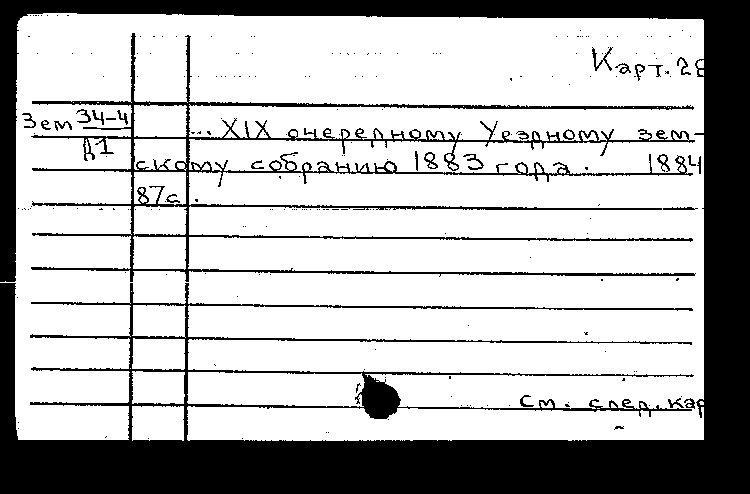 Карт. 28
Зем 34-4
Д1
... XIX очередному Уездному зем-
скому собранию 1883 года. 1884
87с.
см. след. кар